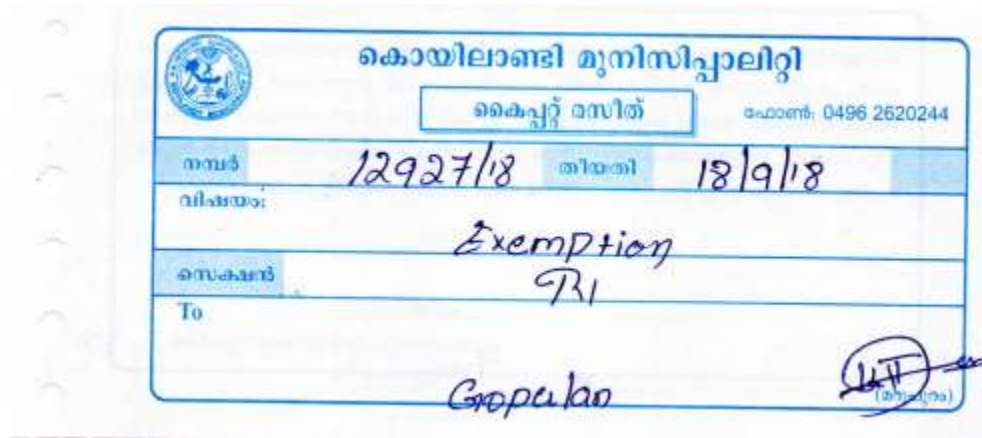 കൊയിലാണ്ടി മുനിസിപ്പാലിറ്റി
കൈപ്പറ്റ് രസീത്
ഫോൺ: 0496 2620244
നമ്പർ 12927/18 തിയതി 18/9/18
വിഷയം:
Exemption
സെക്ഷൻ R1
To
Gopalan
(മറുപുറം)